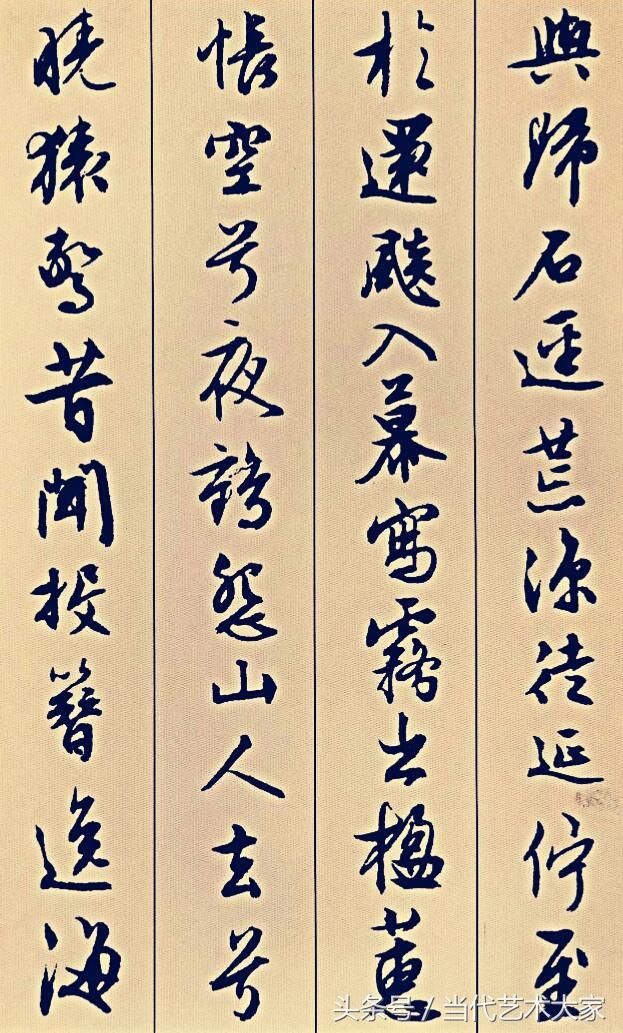 與歸石逕荒涼徒延佇至
於還飆入幕寫霧出楹蕙
帳空兮夜鶴怨山人去兮
曉猿驚昔聞投簪逸海
头条号 / 当代艺术大家